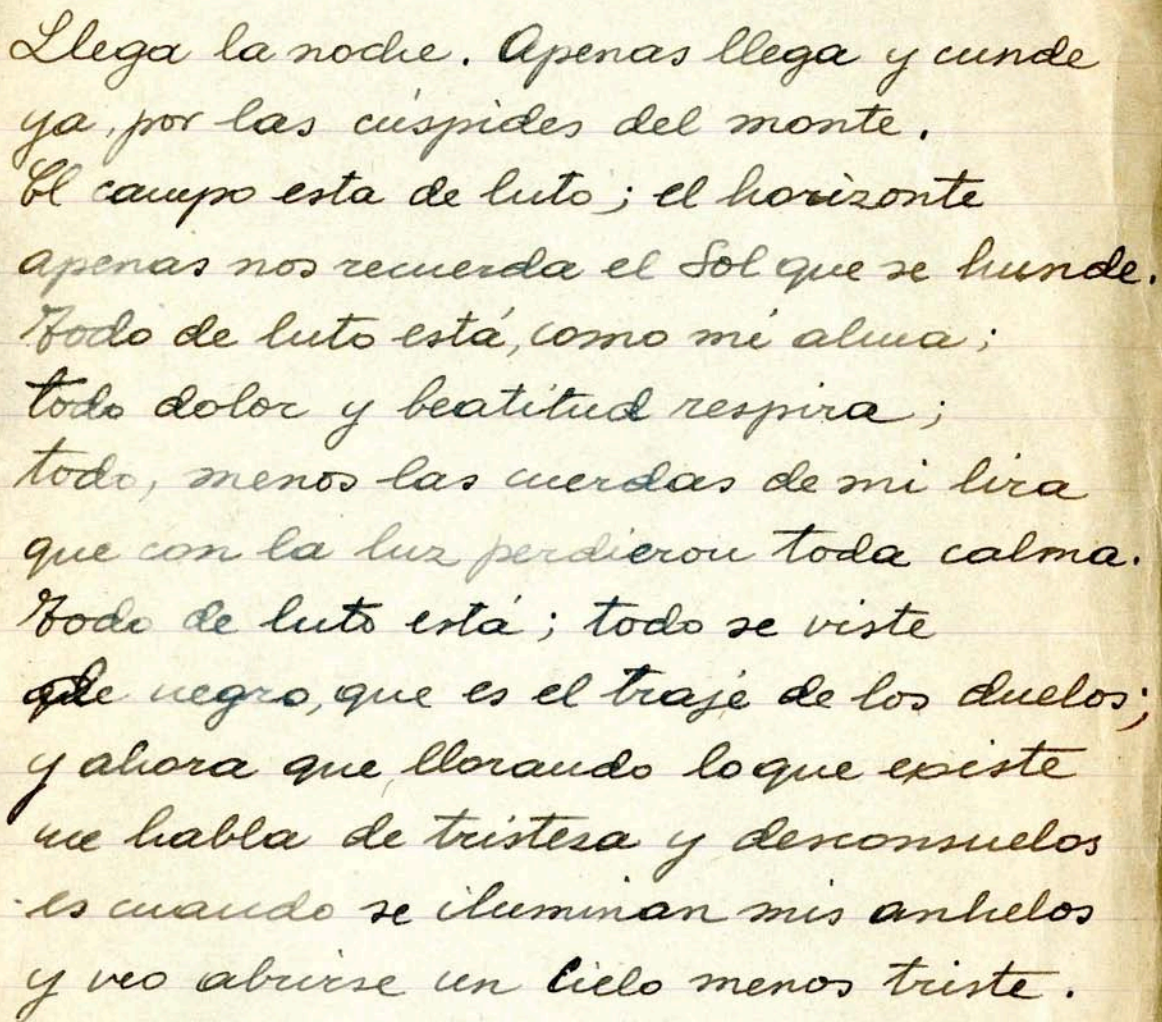 Llega la noche. Apenas llega y cunde
ya, por las cúspides del monte.
El campo esta de luto; el horizonte
apenas nos recuerda el Sol que se hunde.
Todo de luto está, como mi alma;
todo dolor y beatitud respira;
todo, menos las cuerdas de mi lira
que con la luz perdieron toda calma.
Todo de luto está; todo se viste
de negro, que es el traje de los duelos;
y ahora que, llorando lo que existe
me habla de tristesa y desconsuelos
es cuando se iluminan mis anhelos
y veo abrirse un Cielo menos triste.